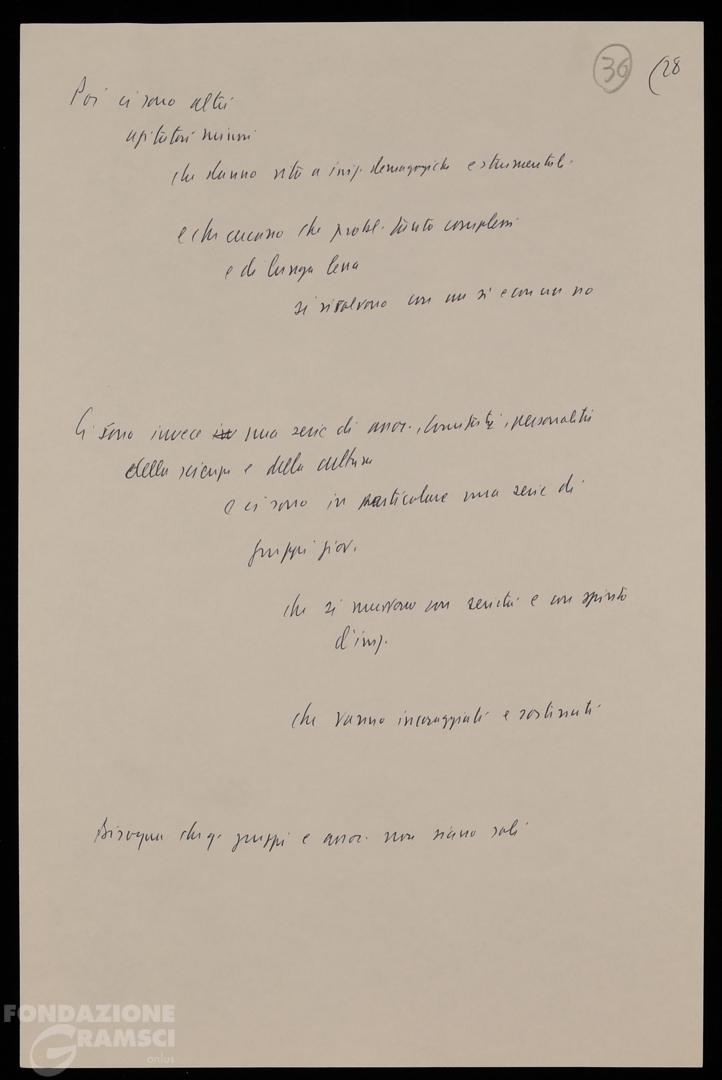 36 (28
Poi ci sono altri
agitatori minori
che danno vita a iniz. demagogiche e strumentali.
e che creano che probl. tanto complessi
e di lunga lena
si risolvono con un si e con un no
Ci sono invece una serie di assoc., comitati, personalità
della scienza e della cultura
e ci sono in particolare una serie di
gruppi giov.
che si muovono con serietà e con spirito
d'iniz.
che vanno incoraggiati e sostenuti
Bisogna che q. gruppi e assoc. non siano soli
FONDAZIONE
GRAMSCI
onlus